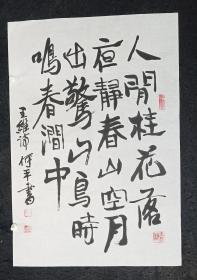 人閒桂花落
夜靜春山空月
出驚山鳥時
鳴春澗中
王維詩 平書